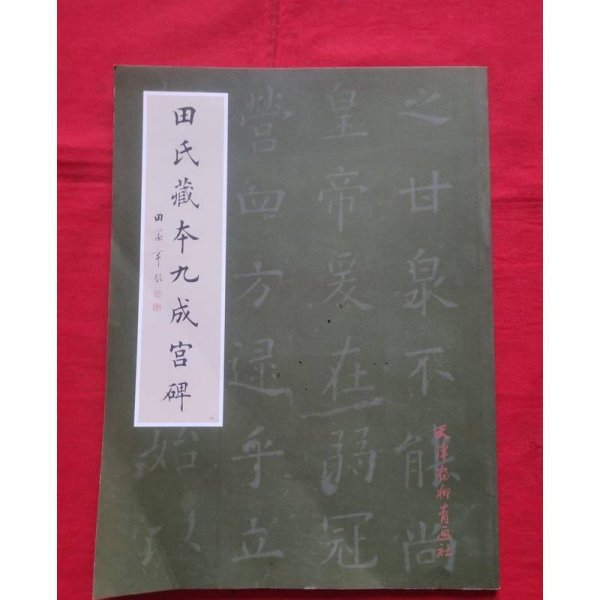 田氏藏本九成宫碑
之甘泉不能尚
皇帝爰在弱冠
营四方逮乎立
始以
天津杨柳青画社